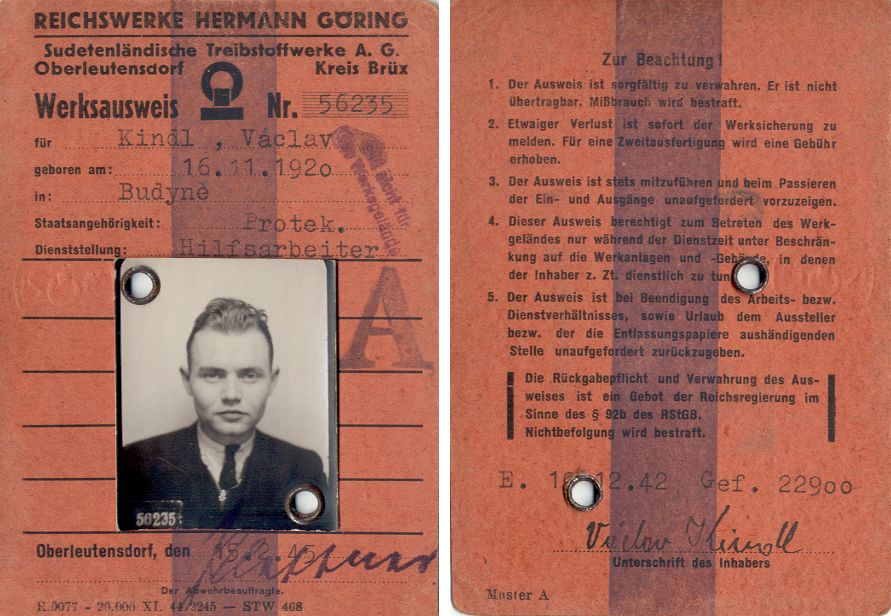 REICHSWERKE HERMANN GÖRING
Sudetenländische Treibstoffwerke A. G.
Oberleutensdorf Kreis Brüx
Werksausweis Nr. 56235
für Kindl , Václav
geboren am: 16.11.1920
in: Budyně
Staatsangehörigkeit: Protek.
Dienststellung: Hilfsarbeiter
nicht für
Werksgelände
A
56235
Oberleutensdorf, den
Der Abwehrbeauftragte.
R 0077 - 20.000 XI. 44/2245 — STW 468
Zur Beachtung!
1. Der Ausweis ist sorgfältig zu verwahren. Er ist nicht
übertragbar. Mißbrauch wird bestraft.
2. Etwaiger Verlust ist sofort der Werksicherung zu
melden. Für eine Zweitausfertigung wird eine Gebühr
erhoben.
3. Der Ausweis ist stets mitzuführen und beim Passieren
der Ein- und Ausgänge unaufgefordert vorzuzeigen.
4. Dieser Ausweis berechtigt zum Betreten des Werk-
geländes nur während der Dienstzeit unter Beschrän-
kung auf die Werkanlagen und -Gebäude, in denen
der Inhaber z. Zt. dienstlich zu tun
5. Der Ausweis ist bei Beendigung des Arbeits- bezw.
Dienstverhältnisses, sowie Urlaub dem Aussteller
bezw. der die Entlassungspapiere aushändigenden
Stelle unaufgefordert zurückzugeben.
Die Rückgabepflicht und Verwahrung des Aus-
weises ist ein Gebot der Reichsregierung im
Sinne des § 92b des RStGB.
Nichtbefolgung wird bestraft.
E. 12.42 Gef. 22900
Václav Kindl
Unterschrift des Inhabers
Muster A